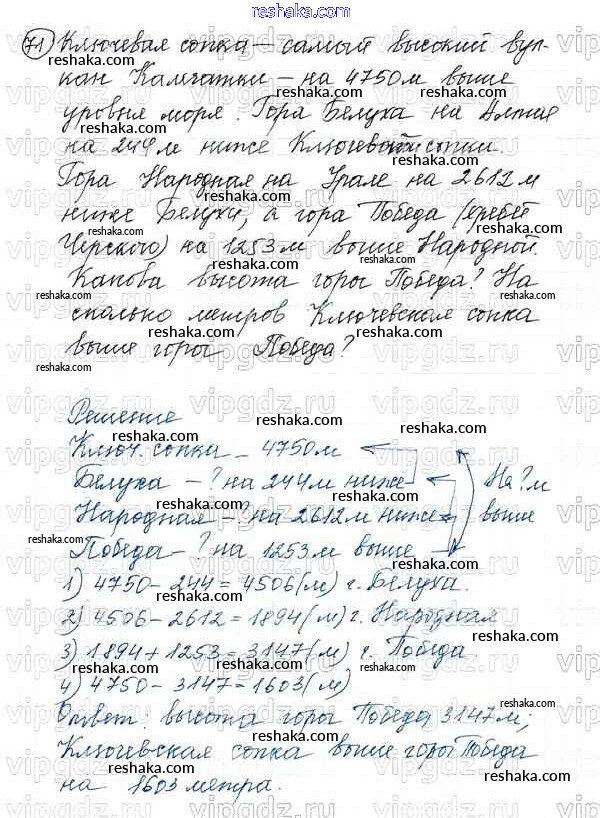 reshaka.com
71 Ключевая сопка – самый высокий вул-
кан Камчатки – на 4750 м выше
уровня моря. Гора Белуха на Алтае
на 244 м ниже Ключевой сопки.
Гора Народная на Урале на 2612 м
ниже Белухи, а гора Победа (хребет
Черского) на 1253 м выше Народной.
Какова высота горы Победа? На
сколько метров Ключевская сопка
выше горы Победа?
Решение
Ключ. сопка – 4750м
Белуха – ? на 244 м ниже
Народная – ? на 2612 м ниже
Победа – ? на 1253 м выше
На ? м
выше
1) 4750 – 244 = 4506 (м) г. Белуха.
2) 4506 – 2612 = 1894 (м) г. Народная
3) 1894 + 1253 = 3147 (м) г. Победа.
4) 4750 – 3147 = 1603 (м)
Ответ: высота горы Победа 3147 м;
Ключевская сопка выше горы Победа
на 1603 метра.